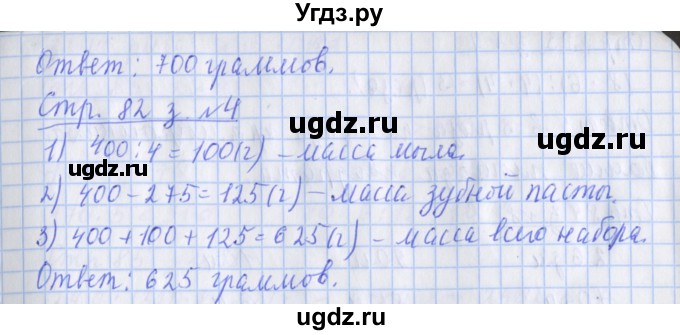 Угдз.ру
Ответ: 700 граммов.
Стр. 82 з. №4
ugdz.ru
ugdz.ru
1) 400:4=100(г) - масса мыла.
ugdz.ru
2) 400-275=125(г) - масса зубной пасты.
ugdz.ru
3) 400+100+125=625(г) - масса всего набора.
Ответ: 625 граммов.
ugdz.ru